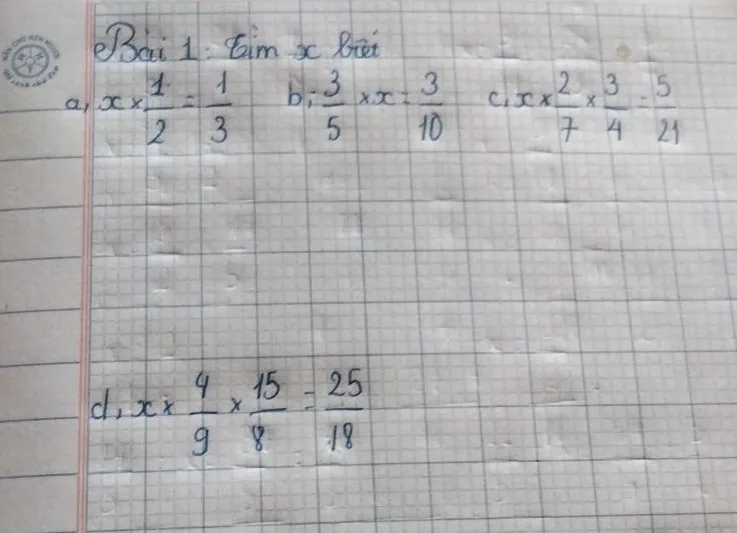 Bài 1: Tìm x biết
a, x × 1/2 = 1/3 b, 3/5 × x = 3/10 c, x × 2/7 × 3/4 = 5/21
d, x × 4/9 × 15/8 = 25/18